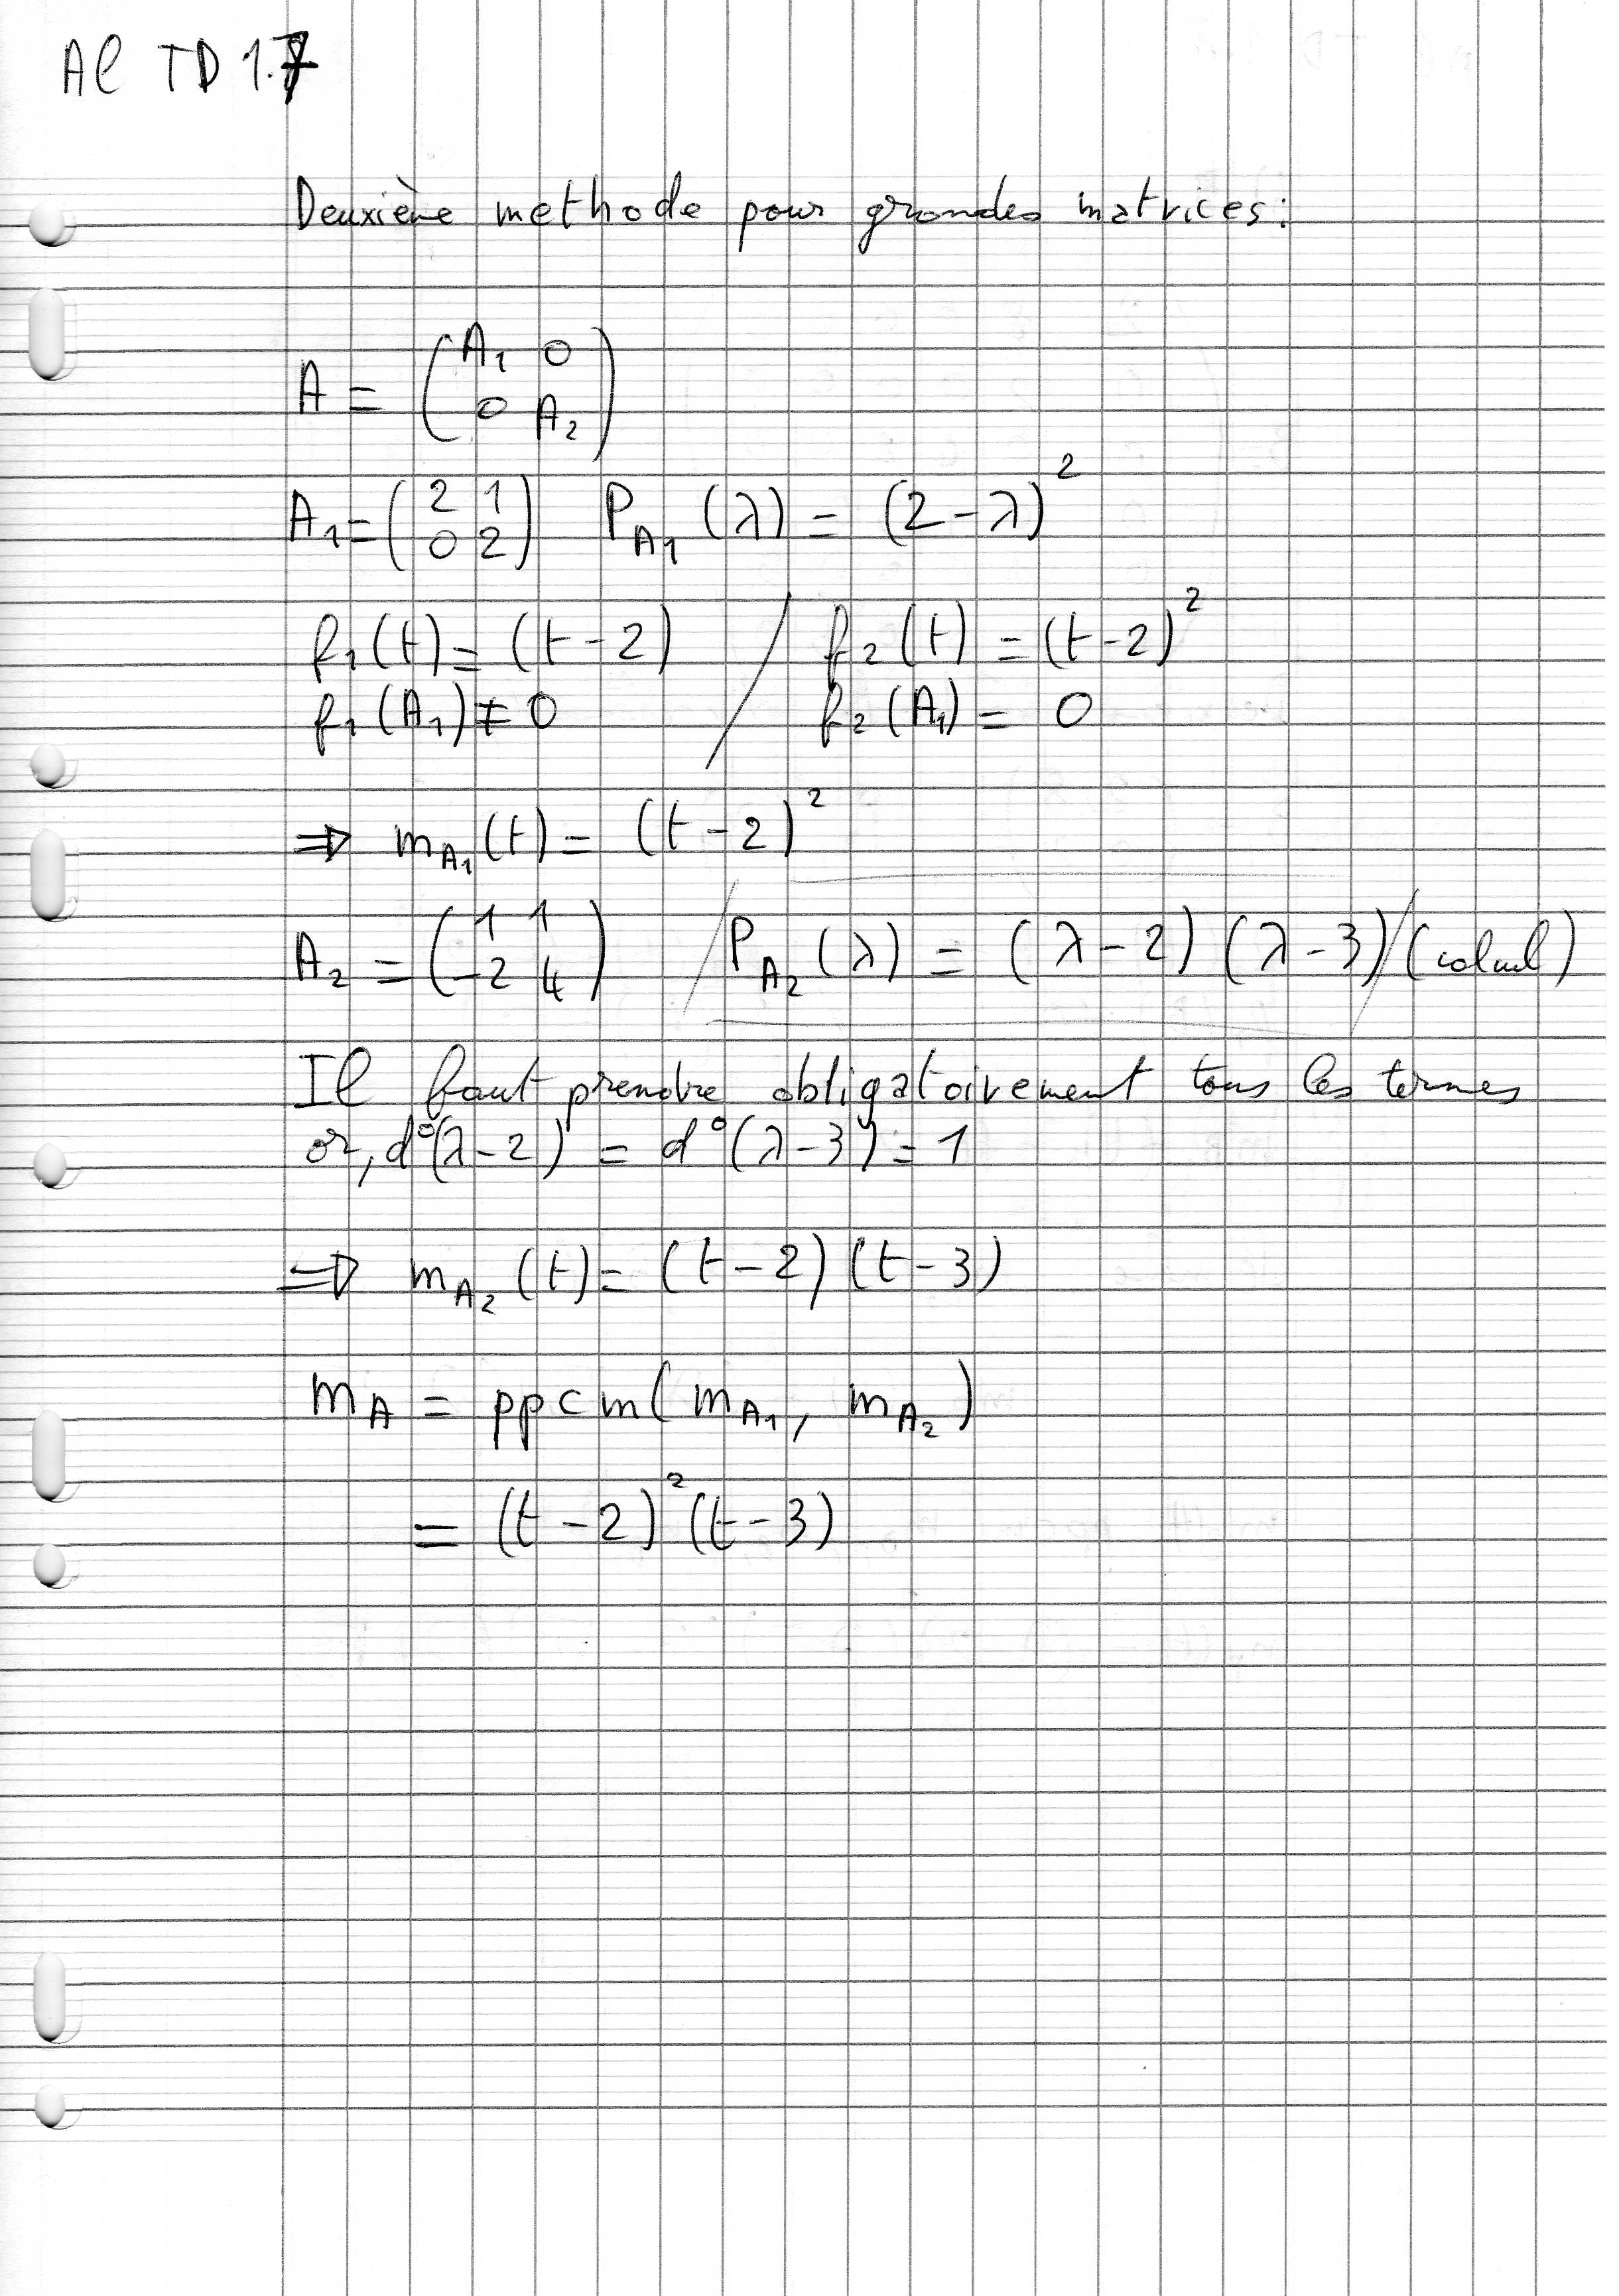 Al TD 1.7
Deuxième methode pour grandes matrices:
A = (A₁ 0
0 A₂)
A₁ = (2 1
0 2) P_A₁(λ) = (2-λ)²
f₁(t) = (t-2) / f₂(t) = (t-2)²
f₁(A₁) ≠ 0 f₂(A₁) = 0
⇒ m_A₁(t) = (t-2)²
A₂ = (1 1
-2 4) / P_A₂(λ) = (λ-2)(λ-3) / (calcul)
Il faut prendre obligatoirement tous les termes
or, d°(λ-2) = d°(λ-3) = 1
⇒ m_A₂(t) = (t-2)(t-3)
m_A = ppcm(m_A₁, m_A₂)
= (t-2)²(t-3)